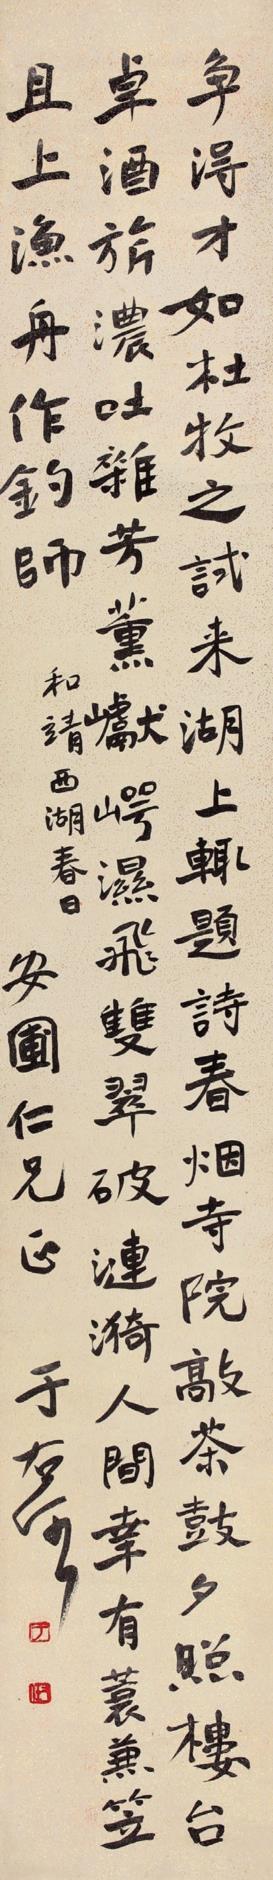 争得才如杜牧之試来湖上輙題詩春烟寺院敲茶鼓夕照樓台
卓酒旂濃吐雜芳薰巘崿濕飛雙翠破漣漪人間幸有蓑兼笠
且上漁舟作釣師
和靖西湖春日
安圃仁兄正
于右任